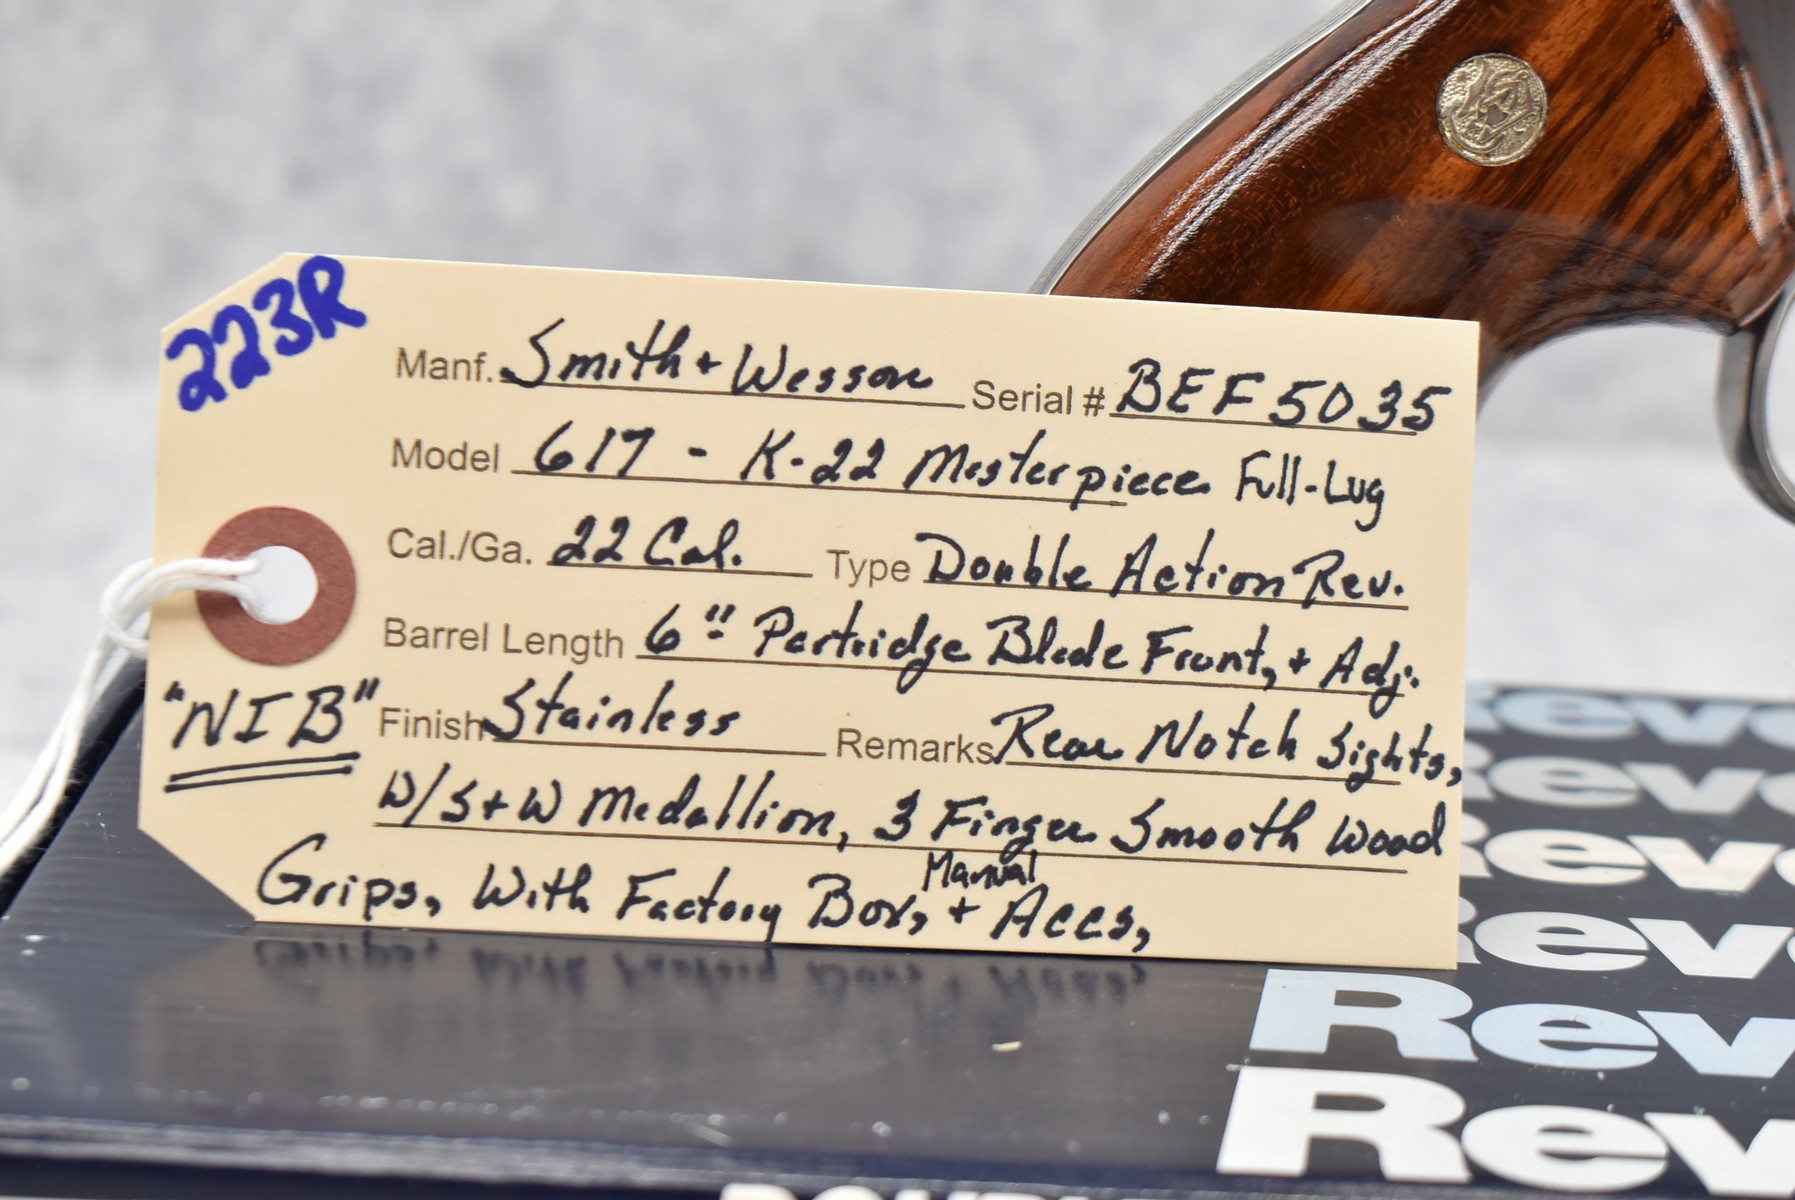 223R
Manf. Smith + Wesson Serial # BEF5035
Model 617 - K-22 Masterpiece Full-Lug
Cal./Ga. 22 Cal. Type Double Action Rev.
Barrel Length 6" Partridge Blade Front, + Adj.
"NIB" Finish Stainless Remarks Rear Notch Sights,
W/S+W Medallion, 3 Finger Smooth Wood
Manual
Grips, With Factory Box, + Accs,
Revo
Revo
Revo
Revo
Rev
Rev